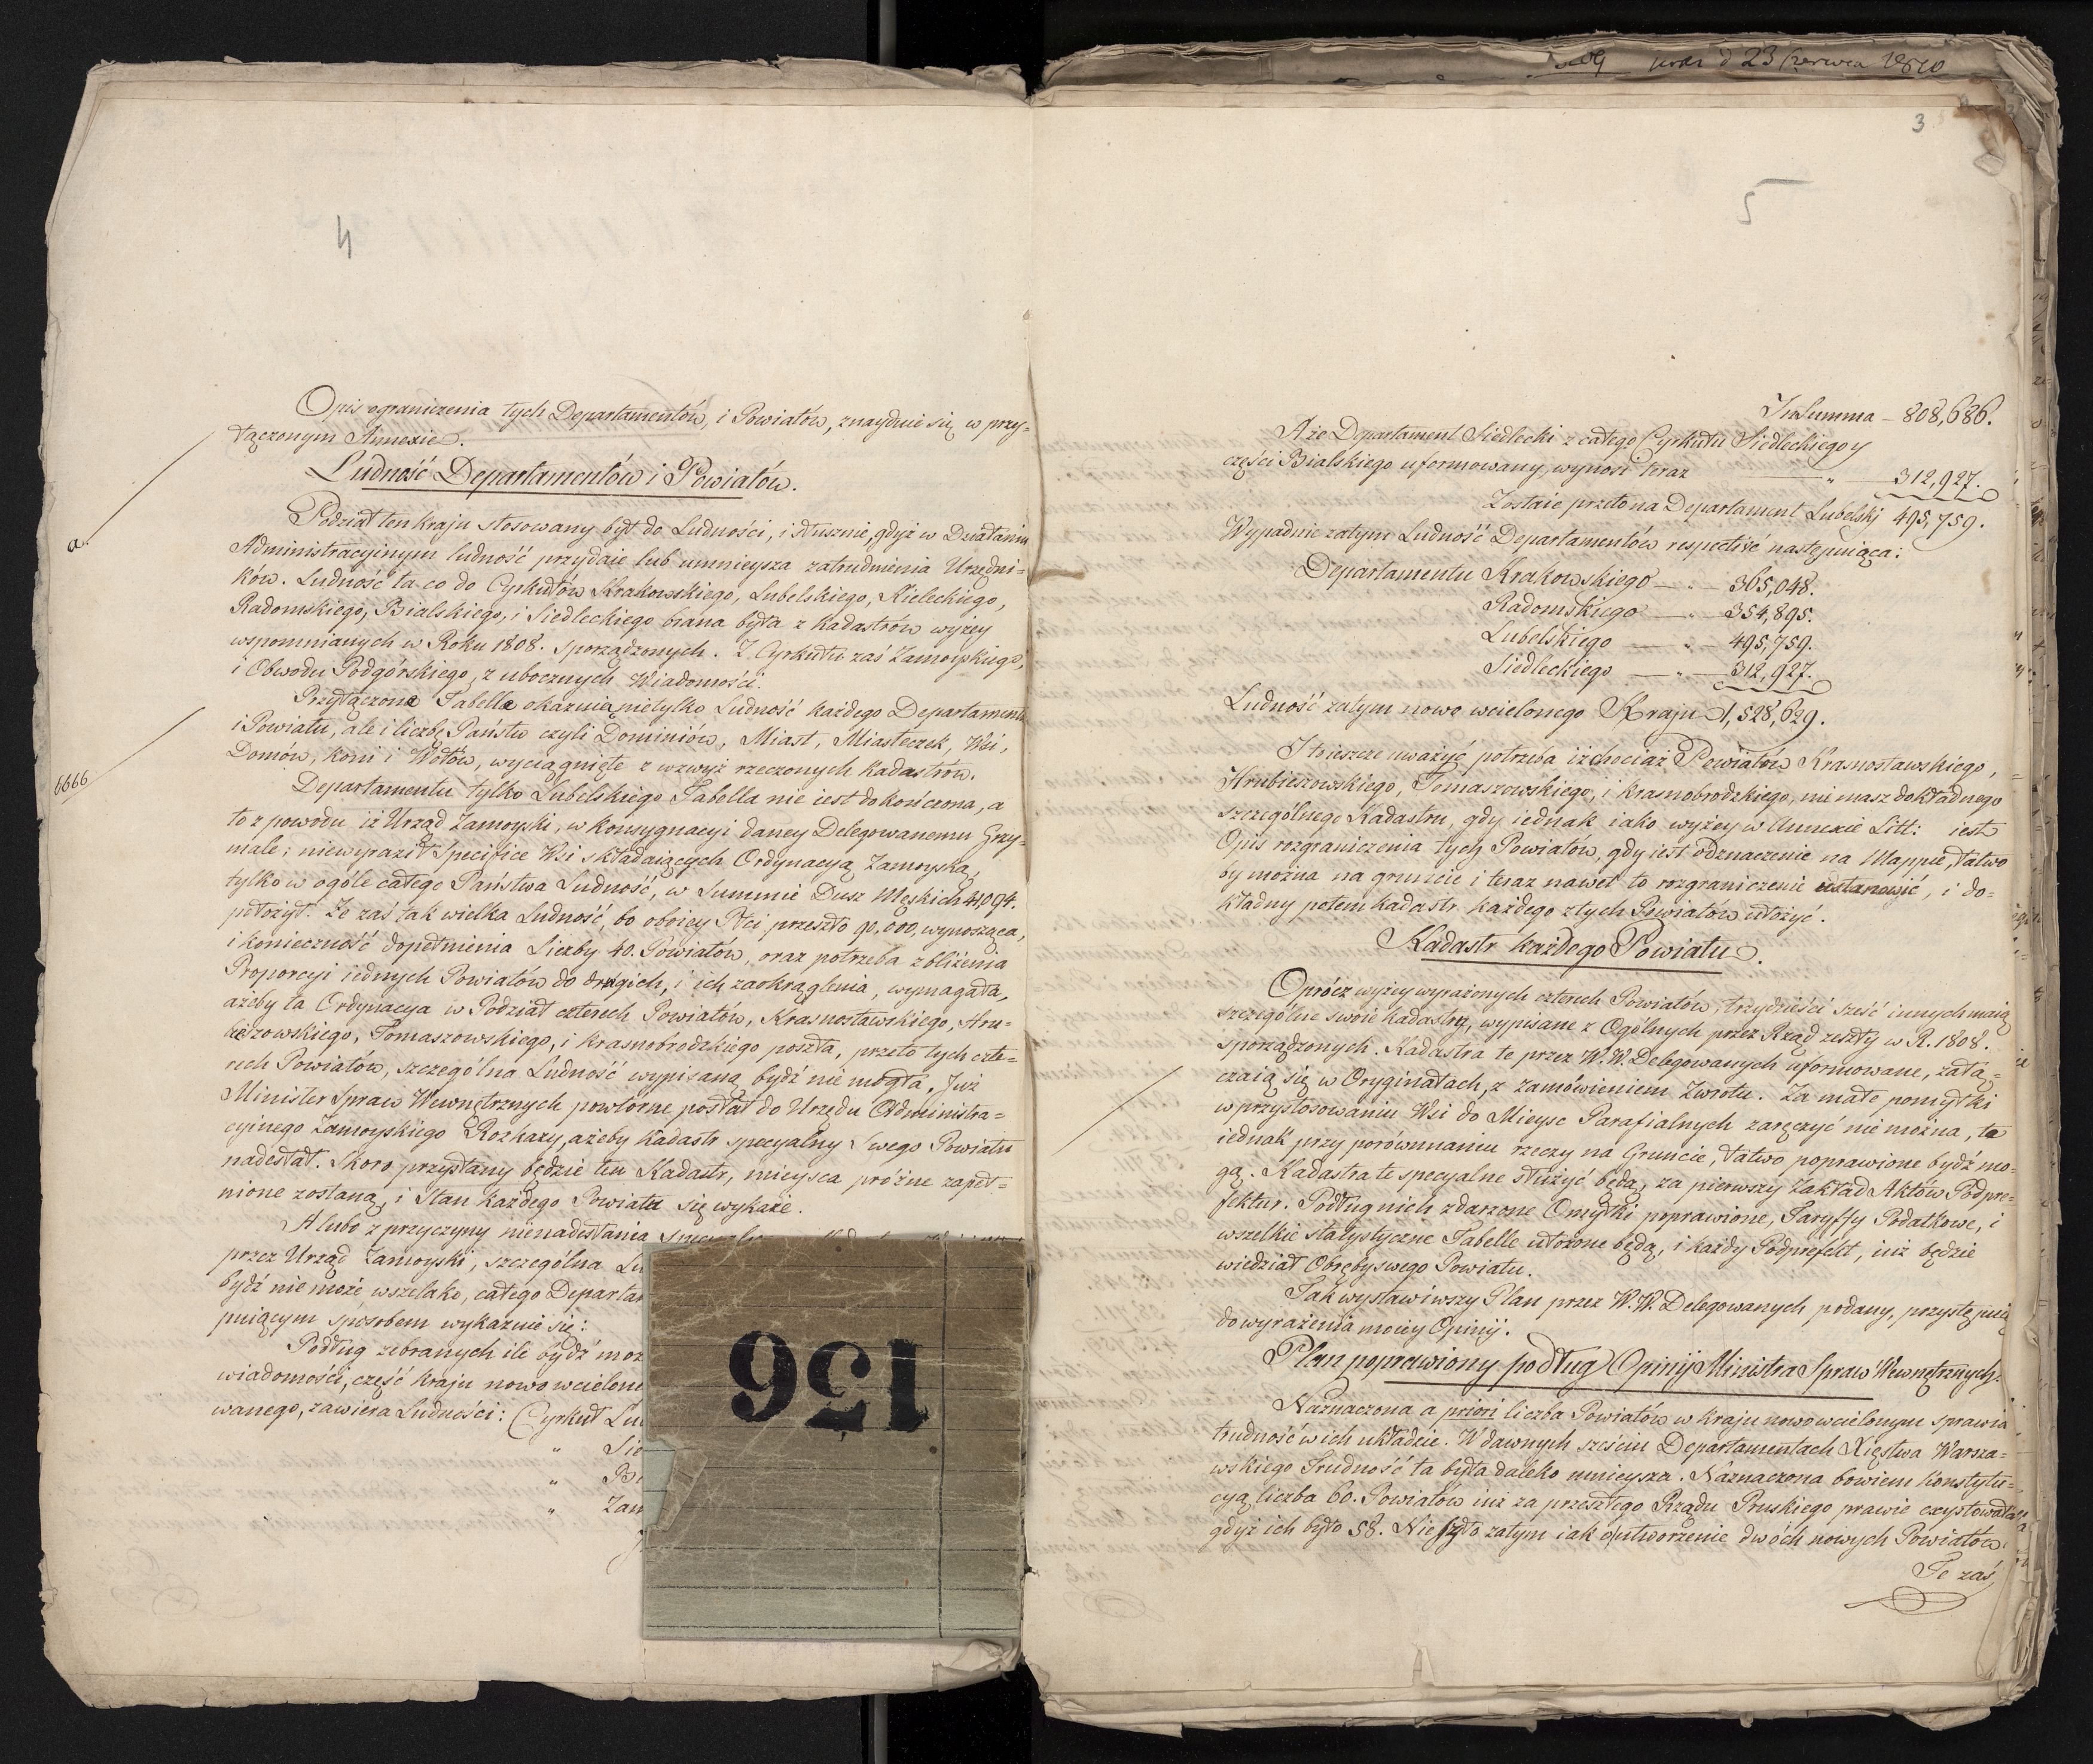 4
Opis ograniczenia tych Departamentów, i Powiatów, znayduie się w przy-
łączonym Annexie.
Ludność Departamentów i Powiatów.
a.
Podział ten kraju stosowany był do Ludności, i słusznie, gdyż w Działaniu
Administracyjnym ludność przydaie lub umnieysza zatrudnienia Urzędni-
ków. Ludność ta co do Cyrkułów Krakowskiego, Lubelskiego, Kieleckiego,
Radomskiego, Bialskiego, i Siedleckiego brana była z Kadastrów wyżey
wspomnianych w Roku 1808. sporządzonych. Z Cyrkułu zaś Zamoyskiego,
i Obwodu Podgórskiego, z ubocznych Wiadomości.
Przyłączona Tabella okazuie nietylko Ludność każdego Departamentu
i Powiatu, ale i liczbę Państw czyli Dominiów, Miast, Miasteczek, Wsi,
6666
Domów, koni i Wołów, wyciągnięte z wzwyż rzeczonych Kadastrów.
Departamentu tylko Lubelskiego Tabella nie iest dokończona, a
to z powodu iż Urząd Zamoyski, w Konsygnacyi daney Delegowanemu Grzy-
male; niewyraził specifice Wsi składaiących Ordynacyą Zamoyską,
tylko w ogóle całego Państwa Ludność, w Summie Dusz Męskich 41,094.
położył. Że zaś tak wielka Ludność, bo oboiey Płci przeszło 90,000, wynosząca,
i konieczność dopełnienia Liczby 40. Powiatów, oraz potrzeba zbliżenia
Proporcyi iednych Powiatów do drugich, i ich zaokrąglenia, wymagała,
ażeby ta Ordynacya w Podział czterech Powiatów, Krasnostawskiego, Hru-
bieszowskiego, Tomaszowskiego, i Krasnobrodzkiego poszła, przeto tych czte-
rech Powiatów, szczególna Ludność wypisaną bydź nie mogła. Już
Minister Spraw Wewnętrznych powtórne posłał do Urzędu Administra-
cyinego Zamoyskiego Rozkazy, ażeby Kadastr specyalny swego Powiatu
nadesłał. Skoro przysłany będzie ten Kadastr, mieysca próżne zapeł-
nione zostaną, i Stan każdego Powiatu się wykaże.
A lubo z przyczyny nienadesłania
przez Urząd Zamoyski, szczególna Lu
bydź nie może wszelako, całego Departa
puiącym sposobem wykazuie się:
Podług zebranych ile bydź moż
wiadomości, część kraju nowo wcielone
wanego, zawiera Ludności: Cyrkuł Lu
" Sie
" Bi
" Zam
156
23 Czerwca 1810
3
5
In Summa – 808,686.
A że Departament Siedlecki z całego Cyrkułu Siedleckiego y
części Bialskiego uformowany, wynosi teraz " 312,927.
Zostaie przeto na Departament Lubelski 495,759.
Wypadnie zatym Ludność Departamentów respectivé następuiąca:
Departamentu Krakowskiego — " — 365,048.
Radomskiego — " — 354,895.
Lubelskiego — " — 495,759.
Siedleckiego — " — 312,927.
Ludność zatym nowo wcielonego Kraju 1,528,629.
I to ieszcze uważyć potrzeba iż chociaż Powiatów Krasnostawskiego,
Hrubieszowskiego, Tomaszowskiego, i Krasnobrodzkiego, nie masz dokładnego
szczególnego Kadastru, gdy iednak iako wyżey w Annexie Litt: iest
Opis rozgraniczenia tych Powiatów, gdy iest odznaczenie na Mappie, łatwo
by można na gruncie i teraz nawet to rozgraniczenie ustanowić, i do-
kładny potem kadastr każdego z tych Powiatów ułożyć.
Kadastr każdego Powiatu.
Oprócz wyżey wyrażonych czterech Powiatów, trzydzieści sześć innych maią
szczególne swoie kadastry, wypisane z Ogólnych przez Rząd zeszły w R. 1808.
sporządzonych. Kadastra te przez W.W. Delegowanych uformowane, załą-
czaią się w Oryginałach, z zamówieniem Zwrotu. Za małe pomyłki
w przystosowaniu Wsi do Mieysc Parafialnych zaręczyć nie można, te
iednak przy porównaniu rzeczy na Gruncie, łatwo poprawione bydź mo-
gą. Kadastra te specyalne służyć będą, za pierwszy Zakład Aktów Podpre-
fektur. Podług nich zdarzone Omyłki poprawione, Taryffy Podatkowe, i
wszelkie statystyczne Tabelle ułożone będą, i każdy Podprefekt, iuż będzie
wiedział Obręby swego Powiatu.
Tak wystawiwszy Plan przez W.W. Delegowanych podany, przystępuię
do wyrażenia moiey Opinij.
Plan poprawiony podług Opinij Ministra Spraw Wewnętrznych.
Naznaczona a priori liczba Powiatów w kraju nowo wcielonym sprawia
trudność w ich układzie. W dawnych sześciu Departamentach Xięstwa Warsza-
wskiego Trudność ta była daleko mnieysza. Naznaczona bowiem Konstytu-
cyą liczba 60. Powiatów iuż za przeszłego Rządu Pruskiego prawie exystowała
gdyż ich było 58. Nie szło zatym iak o utworzenie dwóch nowych Powiatów.
Te zaś